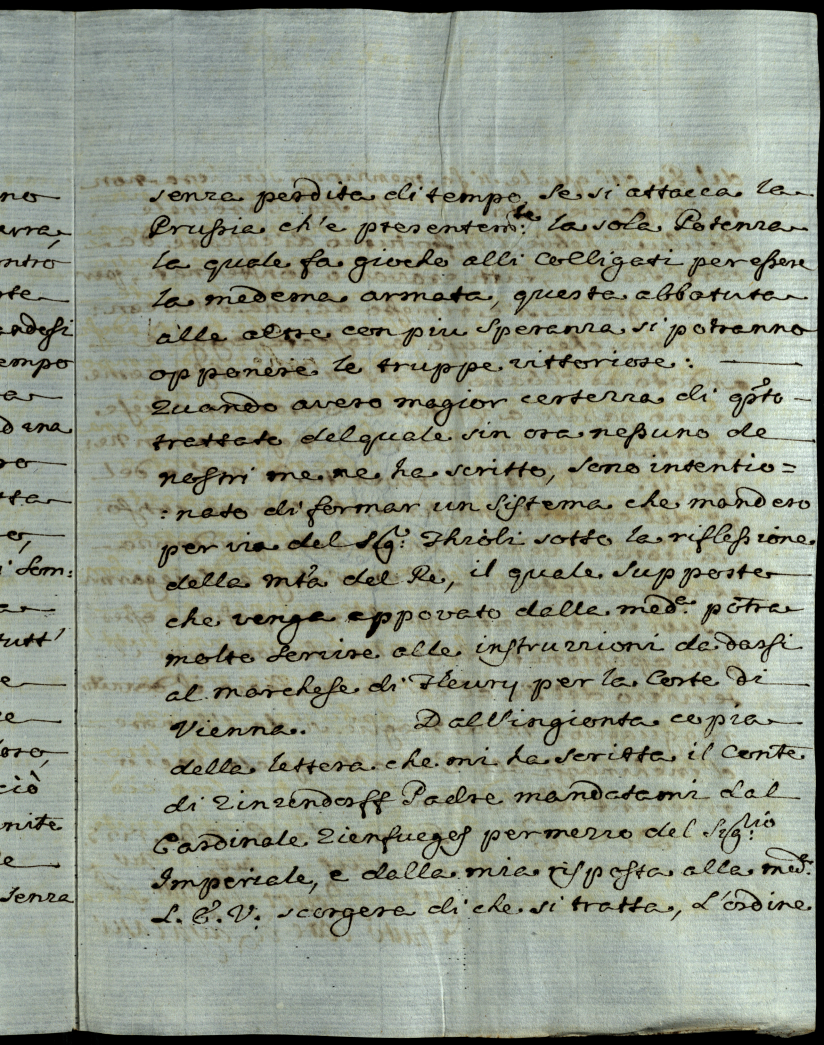 no
avra
ontro
rte
andesi
empo
a
d una
ro
tta
o,
i som:
a
tutt'
e
re
loro,
ciò
nite
le
senza
senza perdita di tempo, se si attacca la
Prussia ch'e presentem:te la sola Potenza
la quale fa gioche alli Colligati per essere
la medema armata, questa abbatuta
alle altre con piu speranza si potranno
opponere le truppe vittoriose:
Quando avero magior certezza di qsto
trattato del quale sin ora nessuno de
nostri me ne ha scritto, sono intentio=
:nato di formar un sistema che mandero
per via del Sig: Thioli sotto la riflessione
della mtà del Re, il quale supposte
che venga appovato dalla meda potra
molto servire alle instruzzioni da darsi
al marchese di Fleury per la Corte di
Vienna. Dall'ingionta copia
della lettera che mi ha scritta il Conte
di Zinzendorff Padre mandatami dal
Cardinale Zienfueges per mezzo del Sig:rio
Imperiale, e dalla mia risposta alla med:
L. E. V. scorgera di che si tratta, L'ordine